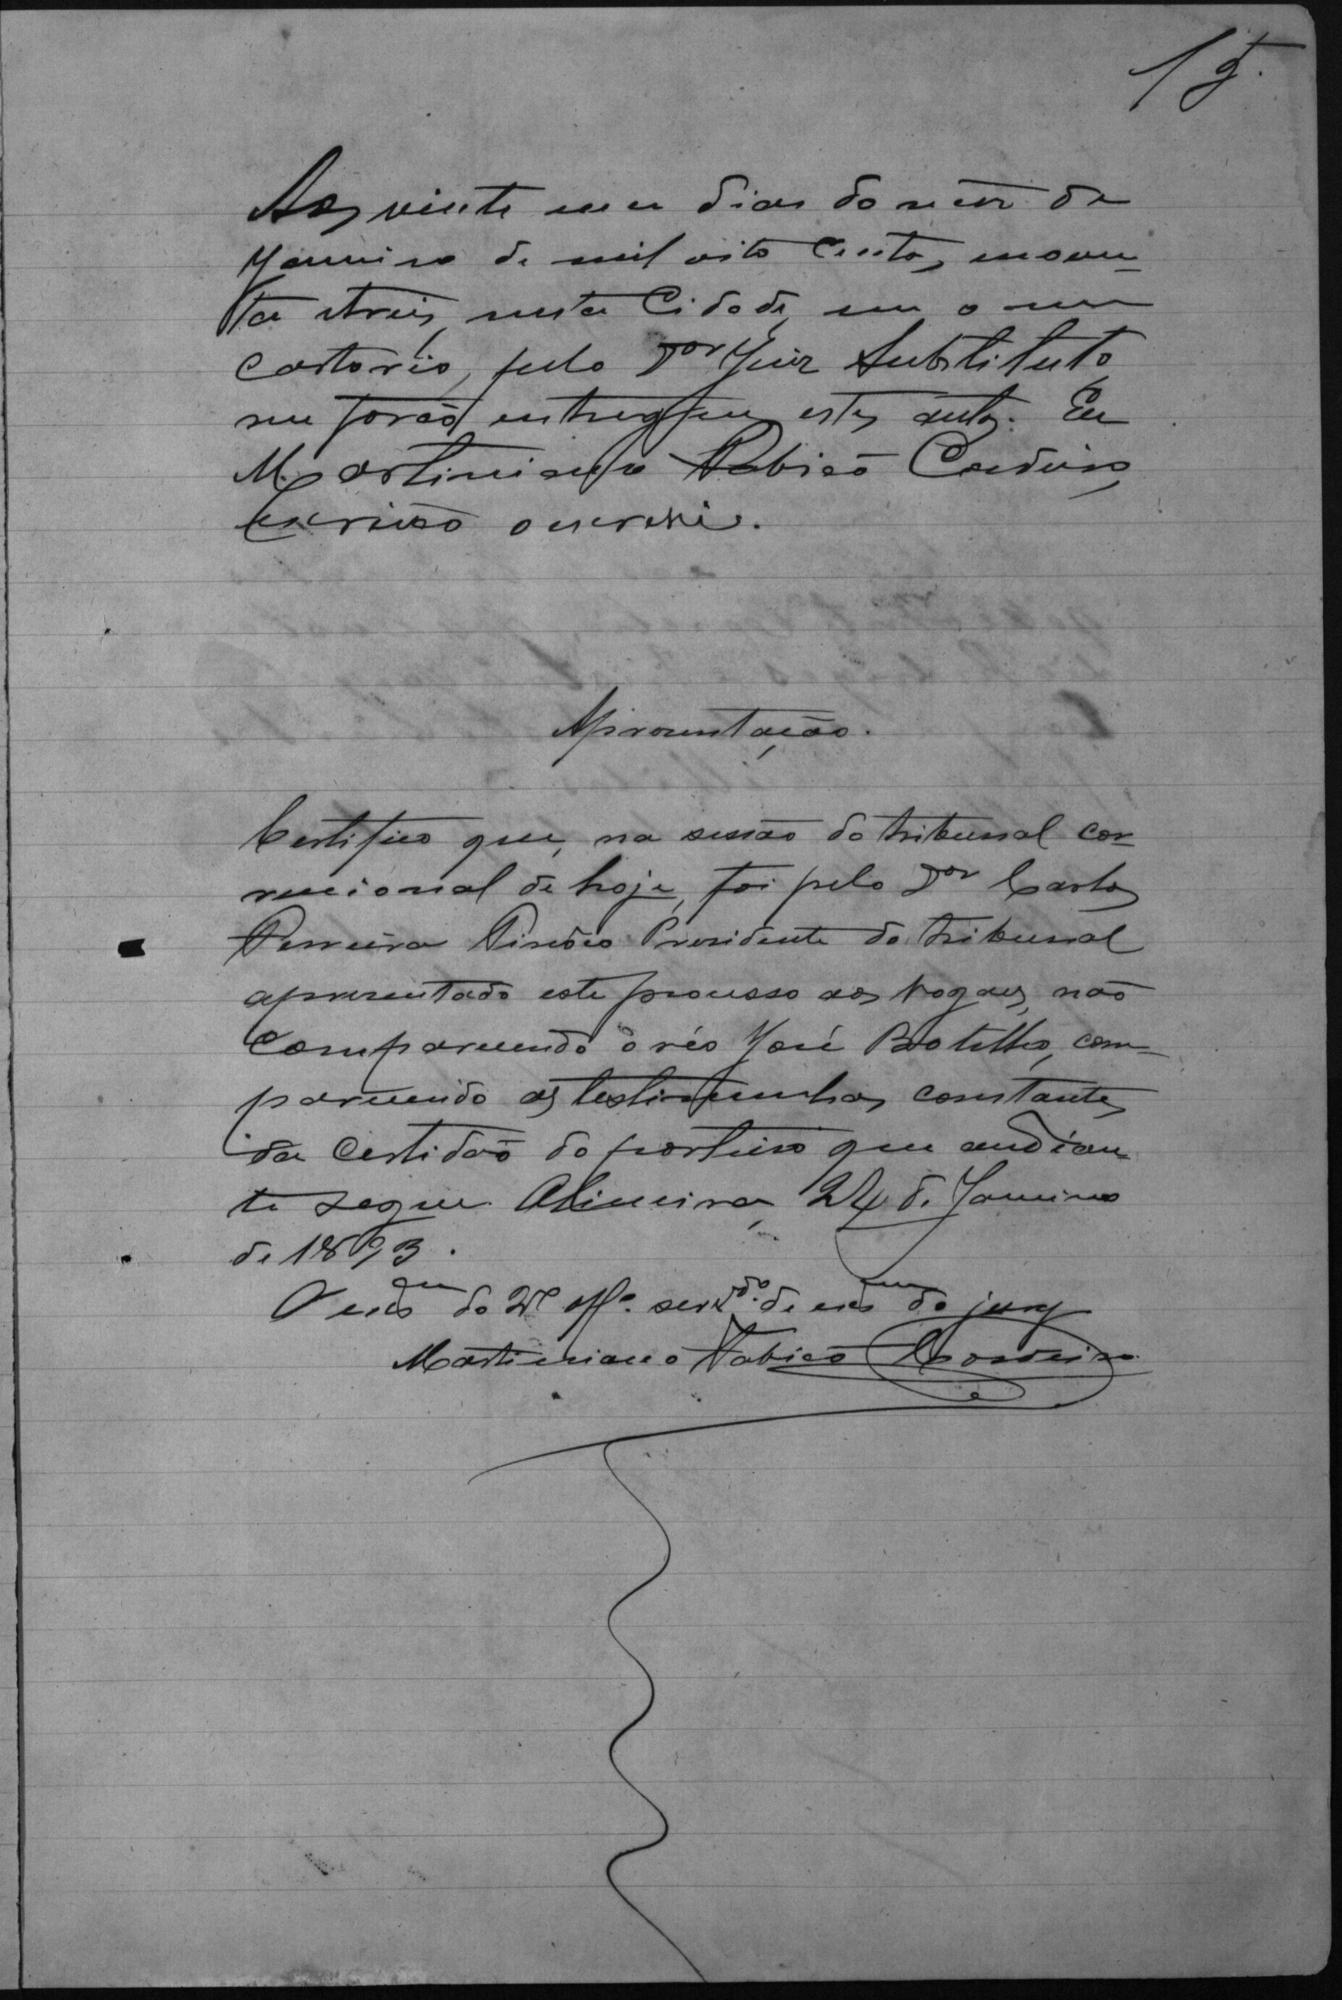 15
Aos vinte um dias do mez de
Janeiro de mil oito centos, e noven-
ta e treis, nesta Cidade, em o meu
cartorio, pelo Dor Juiz Substituto
me forão entregues estes autos. Eu
Martiniano Fabião Cordeiro,
escrivão o escrevi.
Apresentação.
Certifico que, na sessão do tribunal cor-
reccional de hoje, foi pelo Dor Carlos
Ferreira Presidente do tribunal
apresentado este processo aos vogaes, não
comparecendo o réo José Botelho, com-
parecendo as testimunhas constantes
da certidão do porteiro que audian-
te segue. 24 de Janeiro
de 1893.
O escam do 2º Offº. servdo. de escam do jury
Martiniano Fabião Cordeiro